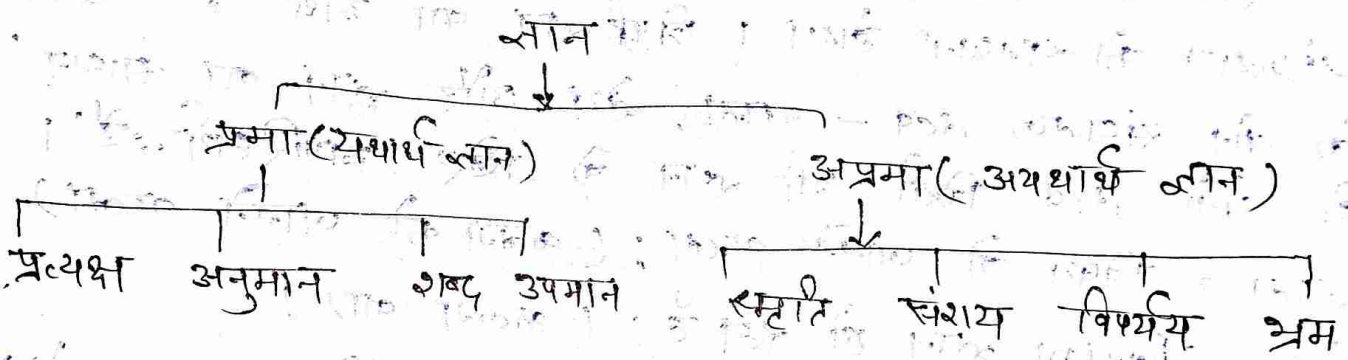 ज्ञान
प्रमा (यथार्थ ज्ञान)
अप्रमा (अयथार्थ ज्ञान)
प्रत्यक्ष अनुमान शब्द उपमान
स्मृति संशय विपर्यय भ्रम